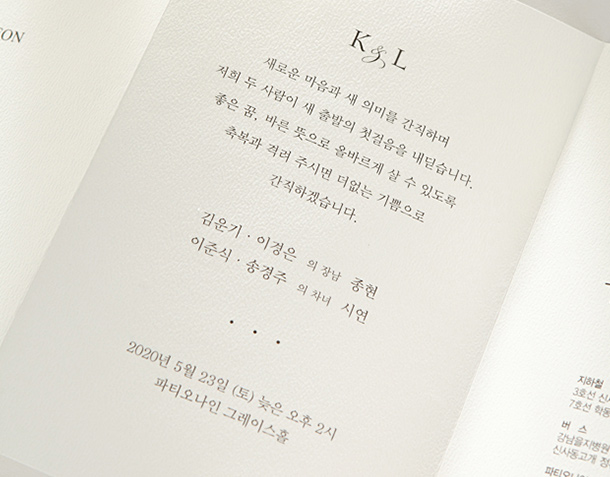 K & L
새로운 마음과 새 의미를 간직하며
저희 두 사람이 새 출발의 첫걸음을 내딛습니다.
좋은 꿈, 바른 뜻으로 올바르게 살 수 있도록
축복과 격려 주시면 더없는 기쁨으로
간직하겠습니다.
김운기 · 이경은 의 장남 종현
이준식 · 송경주 의 차녀 시연
• • •
2020년 5월 23일 (토) 늦은 오후 2시
파티오나인 그레이스홀
지하철
3호선 신사
7호선 학동
버 스
강남을지병원
신사동고개 정